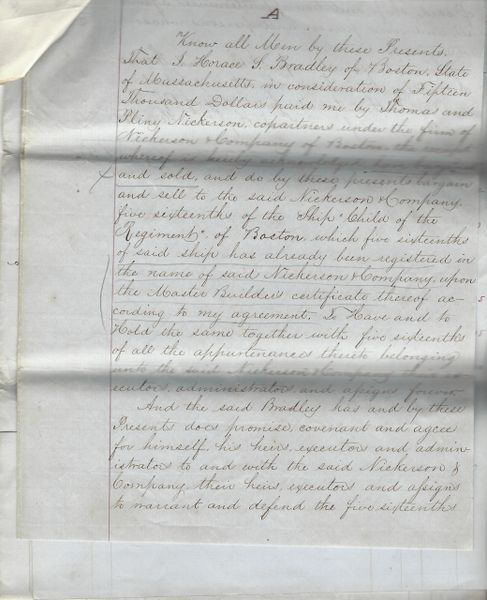 A
Know all Men by these Presents,
That I Horace S. Bradley of Boston, State
of Massachusetts, in consideration of Fifteen
Thousand Dollars paid me by Thomas and
Pliny Nickerson, copartners under the firm of
Nickerson & Company of Boston the
whereof is hereby
and sold, and do by these presents bargain
and sell to the said Nickerson & Company,
five sixteenths of the Ship "Child of the
Regiment" of Boston, which five sixteenths
of said ship has already been registered in
the name of said Nickerson & Company, upon
the Master Builders certificate thereof ac-
cording to my agreement. To Have and to
Hold the same together with five sixteenths
of all the appurtenances thereto belonging
unto the said Nickerson & Company
ecutors, administrators and assigns forever.
And the said Bradley has and by these
Presents does promise, covenant and agree
for himself, his heirs, executors and admin-
istrators to and with the said Nickerson &
Company, their heirs, executors and assigns
to warrant and defend the five sixteenths